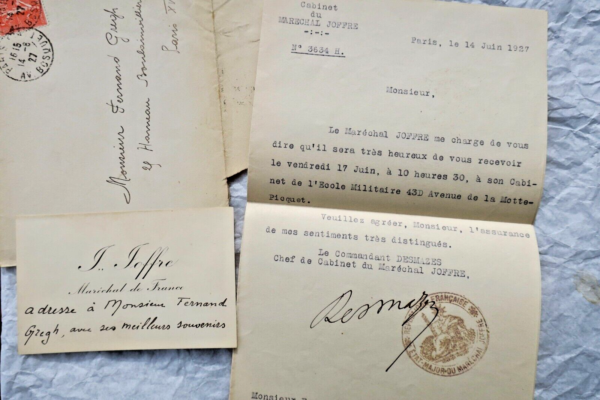 Monsieur Fernand Gregh
Hameau Boulainvilliers
Paris
J. Joffre
Maréchal de France
adresse à Monsieur Fernand
Gregh, avec ses meilleurs souvenirs
Cabinet
du
MARECHAL JOFFRE
-:-:-
N° 3634 H.
Paris, le 14 Juin 1927
Monsieur,
Le Maréchal JOFFRE me charge de vous
dire qu'il sera très heureux de vous recevoir
le vendredi 17 Juin, à 10 heures 30, à son Cabi-
net de l'Ecole Militaire 43D Avenue de la Motte-
Picquet.
Veuillez agréer, Monsieur, l'assurance
de mes sentiments très distingués.
Le Commandant DESMAZES
Chef de Cabinet du Maréchal JOFFRE,
Desmazes
FRANÇAISE
ETAT-MAJOR DU MARÉCHAL
Monsieur